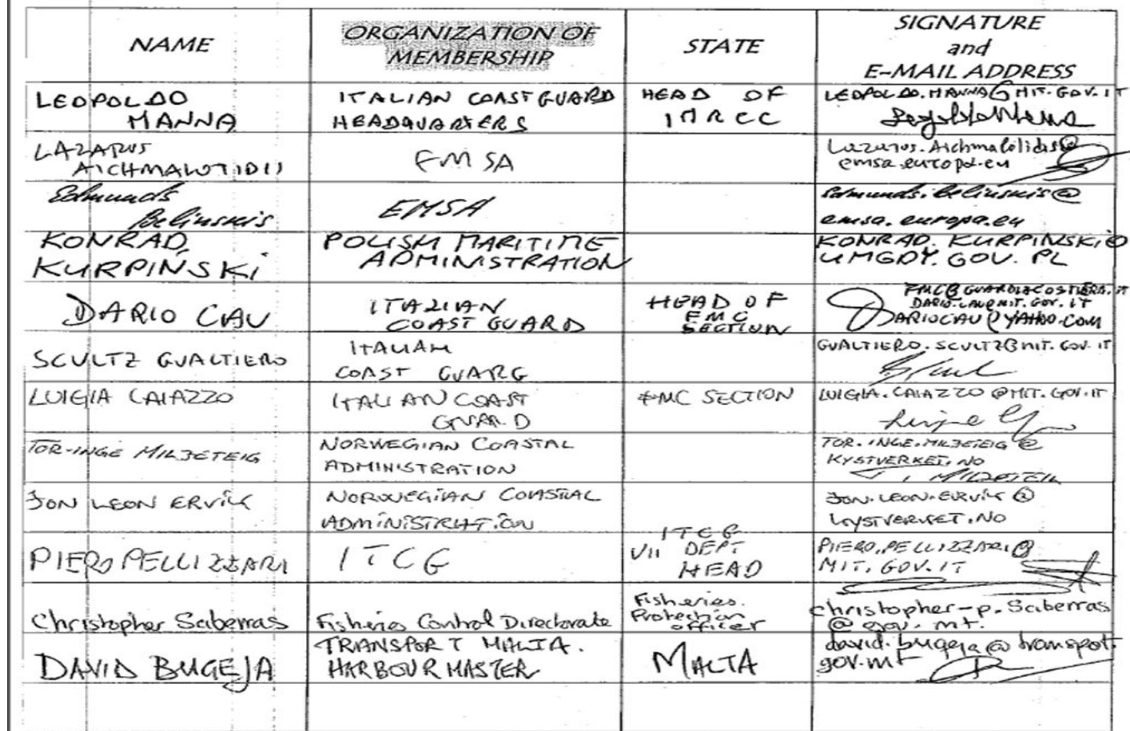 NAME
ORGANIZATION OF
MEMBERSHIP
STATE
SIGNATURE
and
E-MAIL ADDRESS
LEOPOLDO
MANNA
ITALIAN COAST GUARD
HEADQUARTERS
HEAD OF
IMRCC
LEOPOLDO.MANNA@MIT.GOV.IT
LAZARUS
AICHMALOTIDIS
EMSA
Lazarus.Aichmalotidis@
emsa.europa.eu
Edmunds
Belinskis
EMSA
Edmunds.Belinskis@
emsa.europa.eu
KONRAD
KURPINSKI
POLISH MARITIME
ADMINISTRATION
KONRAD.KURPINSKI@
UMGDY.GOV.PL
DARIO CAU
ITALIAN
COAST GUARD
HEAD OF
FMC
SECTION
FMC@GUARDIACOSTIERA.IT
DARIO.CAU@MIT.GOV.IT
DARIOCAU@YAHOO.COM
SCULTZ GUALTIERO
ITALIAN
COAST GUARG
GUALTIERO.SCULTZ@MIT.GOV.IT
LUIGIA CAIAZZO
ITALIAN COAST
GUARD
FMC SECTION
LUIGIA.CAIAZZO@MIT.GOV.IT
TOR-INGE MILJETEIG
NORWEGIAN COASTAL
ADMINISTRATION
TOR.INGE.MILJETEIG@
KYSTVERKET.NO
JON LEON ERVIK
NORWEGIAN COASTAL
ADMINISTRATION
JON.LEON.ERVIK@
KYSTVERKET.NO
PIERO PELLIZZARI
ITCG
ITCG
VII DEPT
HEAD
PIERO.PELLIZZARI@
MIT.GOV.IT
Christopher Sciberras
Fisheries Control Directorate
Fisheries.
Protection
officer
christopher-p.Sciberras
@gov.mt.
DAVID BUGEJA
TRANSPORT MALTA.
HARBOUR MASTER
MALTA
david.bugeja@transport.
gov.mt